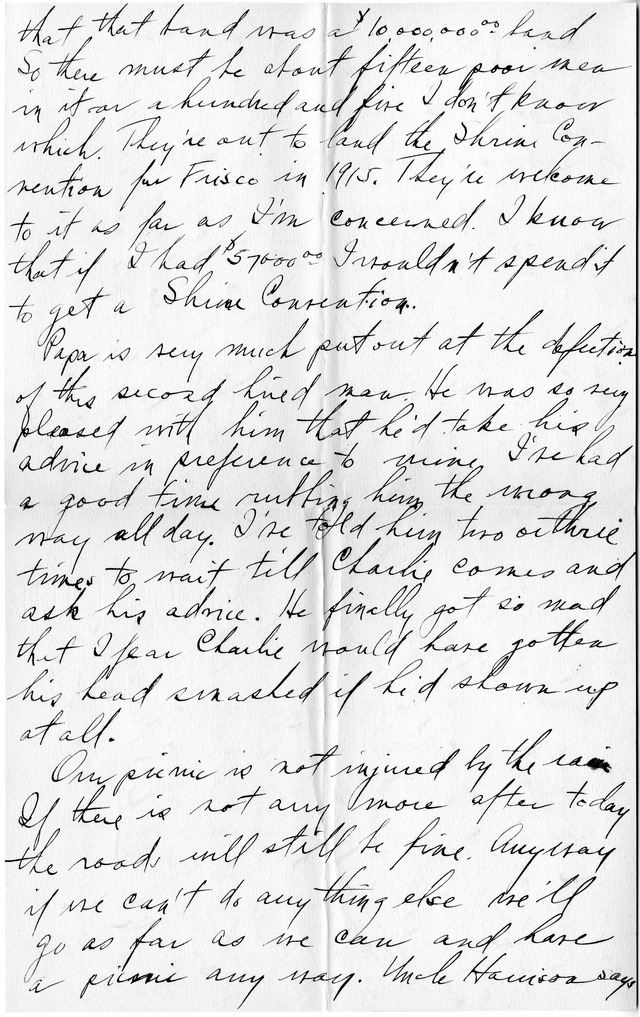 that that band was a $10,000,000.00 band
So there must be about fifteen poor men
in it or a hundred and five I don't know
which. They're out to land the Shrine Con-
vention for Frisco in 1915. They're welcome
to it as far as I'm concerned. I know
that if I had $57000.00 I wouldn't spend it
to get a Shrine Convention.
Papa is very much put out at the defection
of this second hired man. He was so very
pleased with him that he'd take his
advice in preference to mine. I've had
a good time rubbing him the wrong
way all day. I've told him two or three
times to wait till Charlie comes and
ask his advice. He finally got so mad
that I fear Charlie would have gotten
his head smashed if he'd shown up
at all.
Our picnic is not injured by the rain
If there is not any more after today
the roads will still be fine. Anyway
if we can't do anything else we'll
go as far as we can and have
a picnic any way. Uncle Harrison says